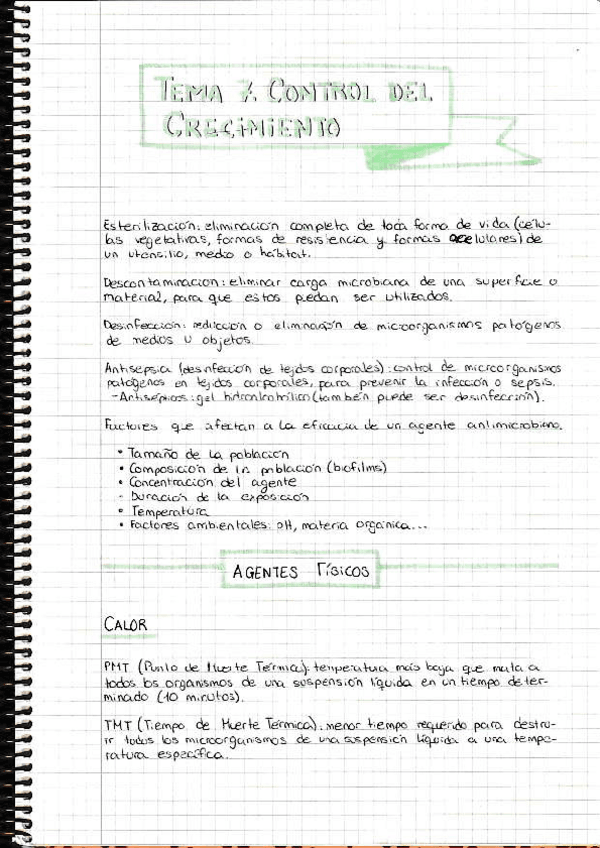 TEMA 7. CONTROL DEL
CRECIMIENTO
Esterilización: eliminación completa de toda forma de vida (célu-
las vegetativas, formas de resistencia y formas acelulares) de
un utensilio, medio o hábitat.
Descontaminación: eliminar carga microbiana de una superficie o
material, para que estos puedan ser utilizados.
Desinfección: reducción o eliminación de microorganismos patógenos
de medios u objetos.
Antisepsia (desinfección de tejidos corporales): control de microorganismos
patógenos en tejidos corporales, para prevenir la infección o sepsis.
-Antisépticos: gel hidroalcohólico (también puede ser desinfección).
Factores que afectan a la eficacia de un agente antimicrobiano.
• Tamaño de la población
• Composición de la población (biofilms)
• Concentración del agente
• Duración de la exposición
• Temperatura
• Factores ambientales: pH, materia orgánica...
AGENTES FÍSICOS
CALOR
PMT (Punto de Muerte Térmica): temperatura más baja que mata a
todos los organismos de una suspensión líquida en un tiempo deter-
minado (10 minutos).
TMT (Tiempo de Muerte Térmica): menor tiempo requerido para destru-
ir todos los microorganismos de una suspensión líquida a una tempe-
ratura específica.